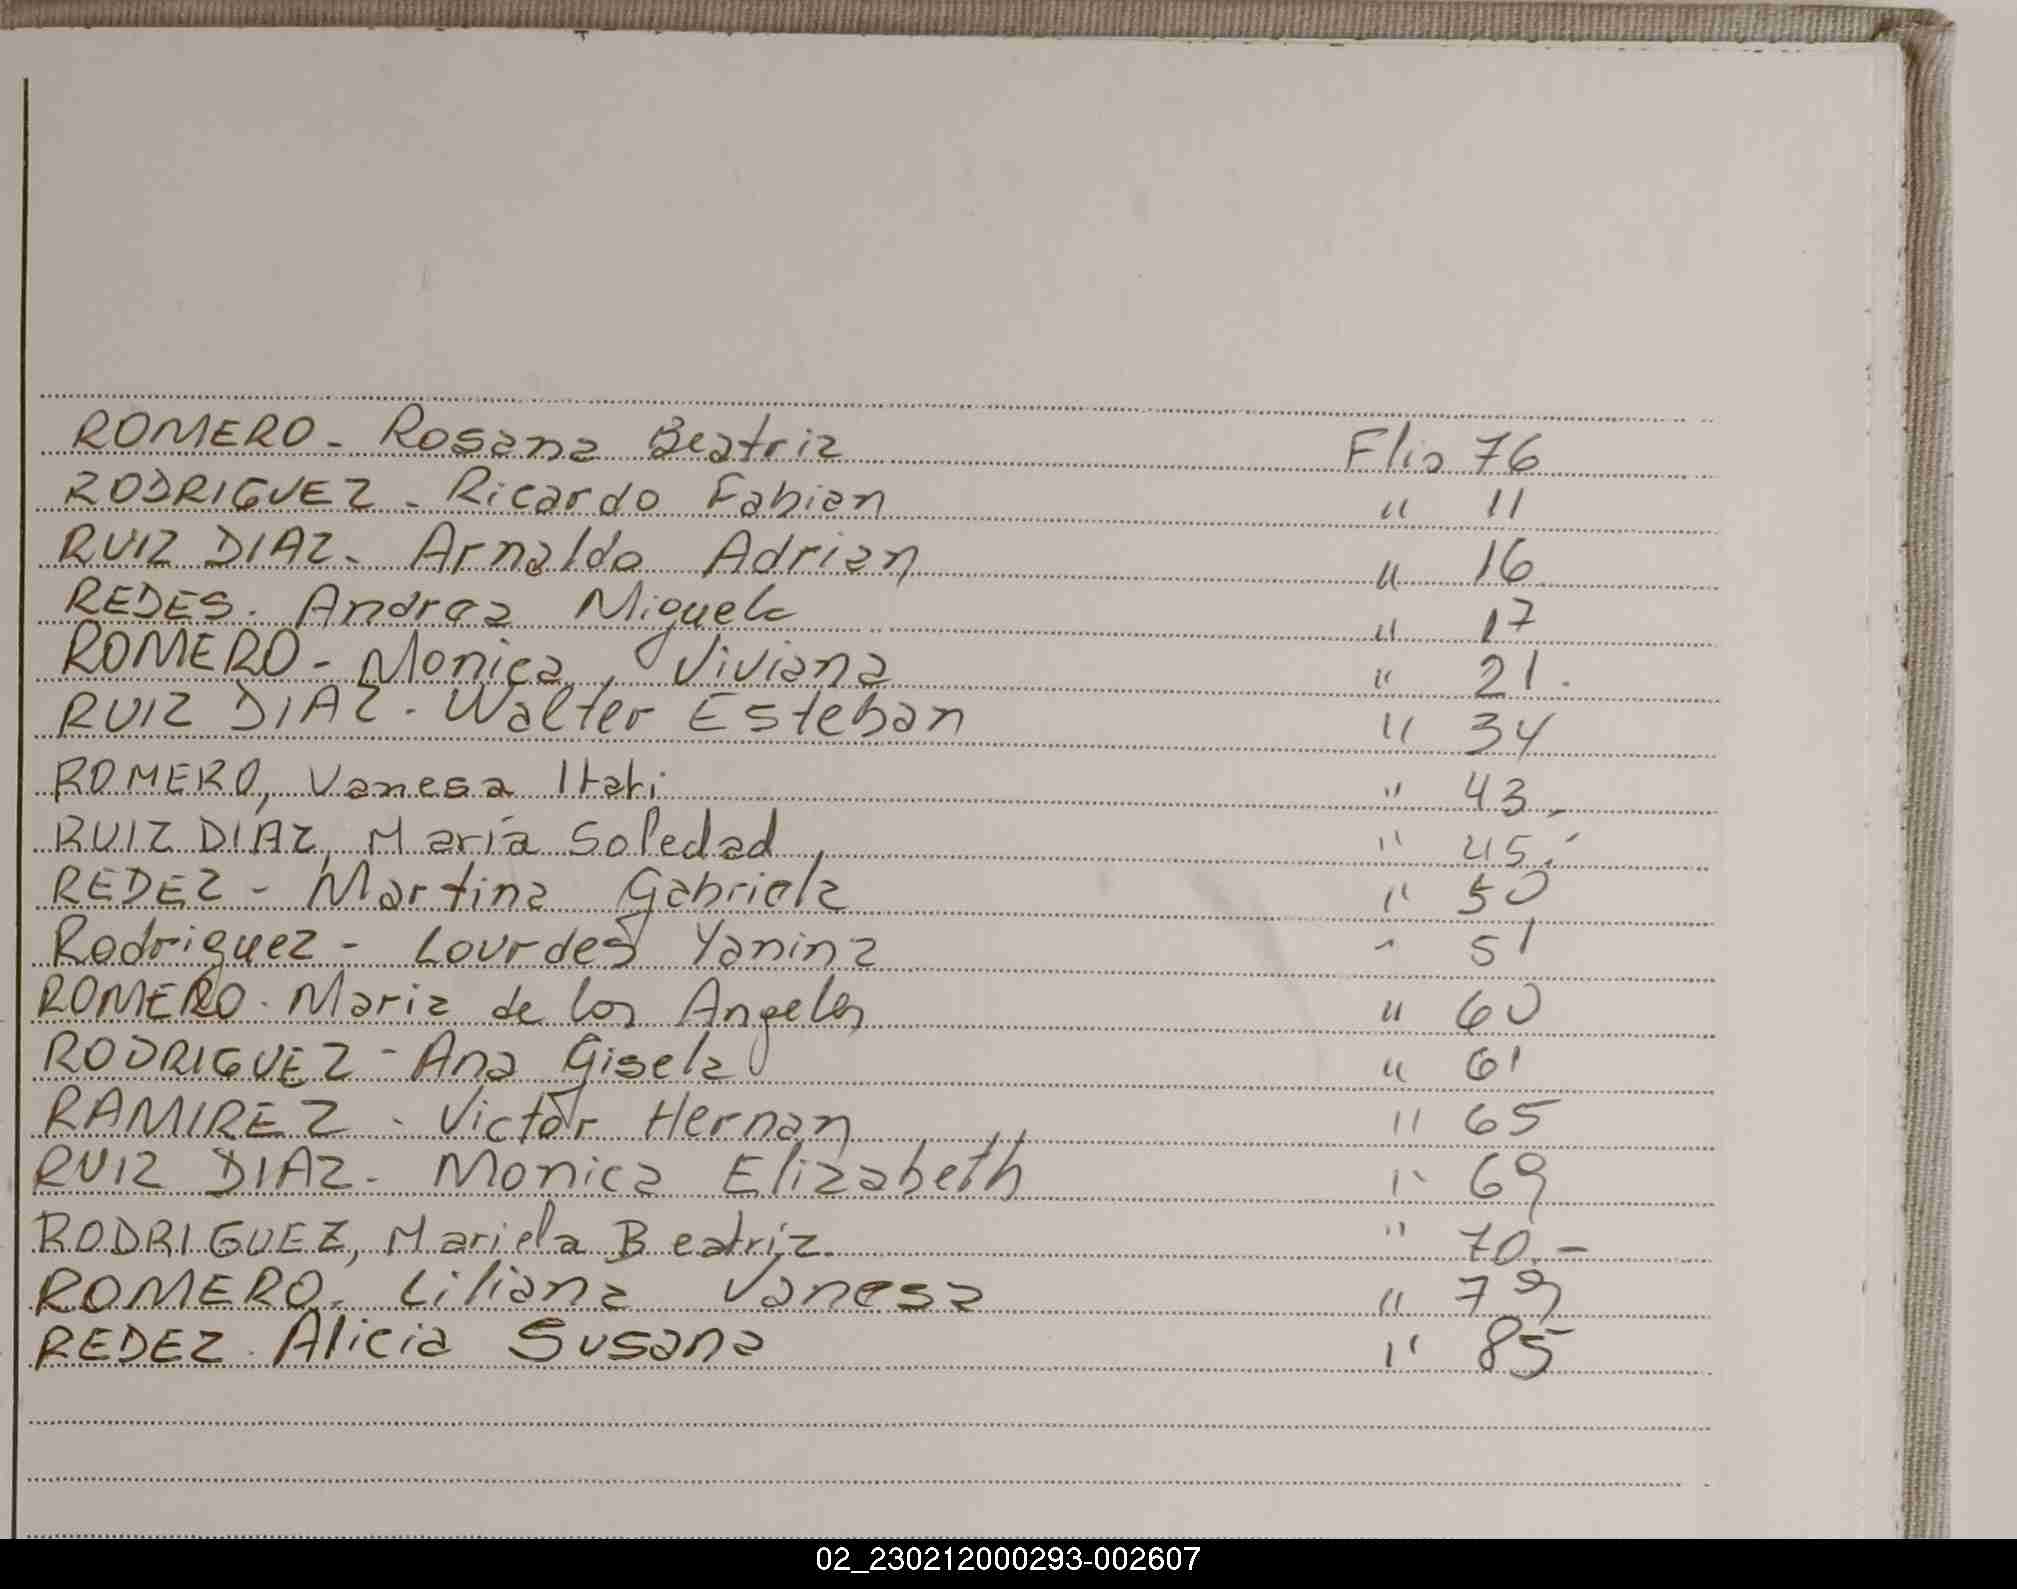 ROMERO - Rosana Beatriz Flio 76
RODRIGUEZ - Ricardo Fabian " 11
RUIZ DIAZ - Arnaldo Adrian " 16
REDES. Andrea Miguela " 17
ROMERO - Monica Viviana " 21.
RUIZ DIAZ - Walter Esteban " 34
ROMERO, Vanesa Itati " 43.-
RUIZ DIAZ, María Soledad " 45.-
REDEZ - Martina Gabriela " 50
Rodriguez - Lourdes Yanina " 51
ROMERO - Maria de los Angeles " 60
RODRIGUEZ - Ana Gisela " 61
RAMIREZ - Victor Hernan " 65
RUIZ DIAZ - Monica Elizabeth " 69
RODRIGUEZ, Mariela Beatríz. " 70.-
ROMERO - Liliana Vanesa " 79
REDEZ - Alicia Susana " 85
02_230212000293-002607